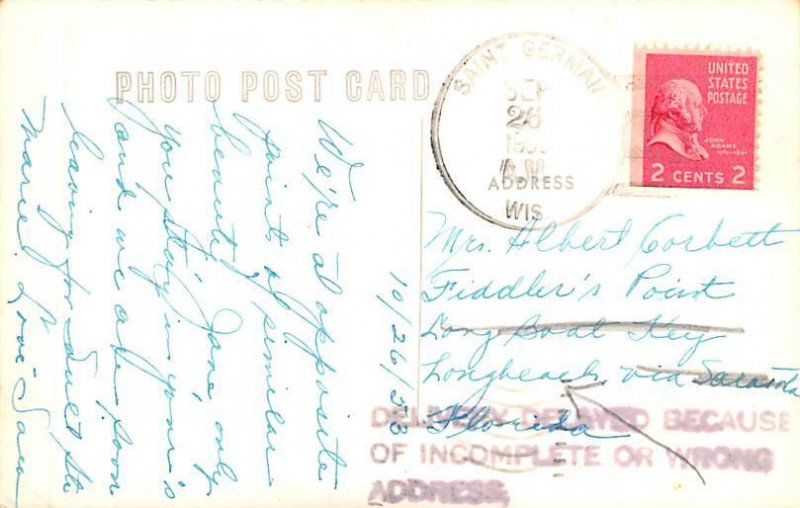 PHOTO POST CARD
SAINT GERMAIN
SEP
26
A.M
WIS
ADDRESS
UNITED
STATES
POSTAGE
JOHN
ADAMS
2 CENTS 2
10/26/53
We're at opposite
points of similar
beauty, Jane, only
you stay in your's
and we are soon
leaving for Sault Ste
Marie! Love
Mrs. Albert Corbett
Fiddler's Point
Long Boat Key
Longbeach, via Sarasota
Florida
DELIVERY DELAYED BECAUSE
OF INCOMPLETE OR WRONG
ADDRESS,